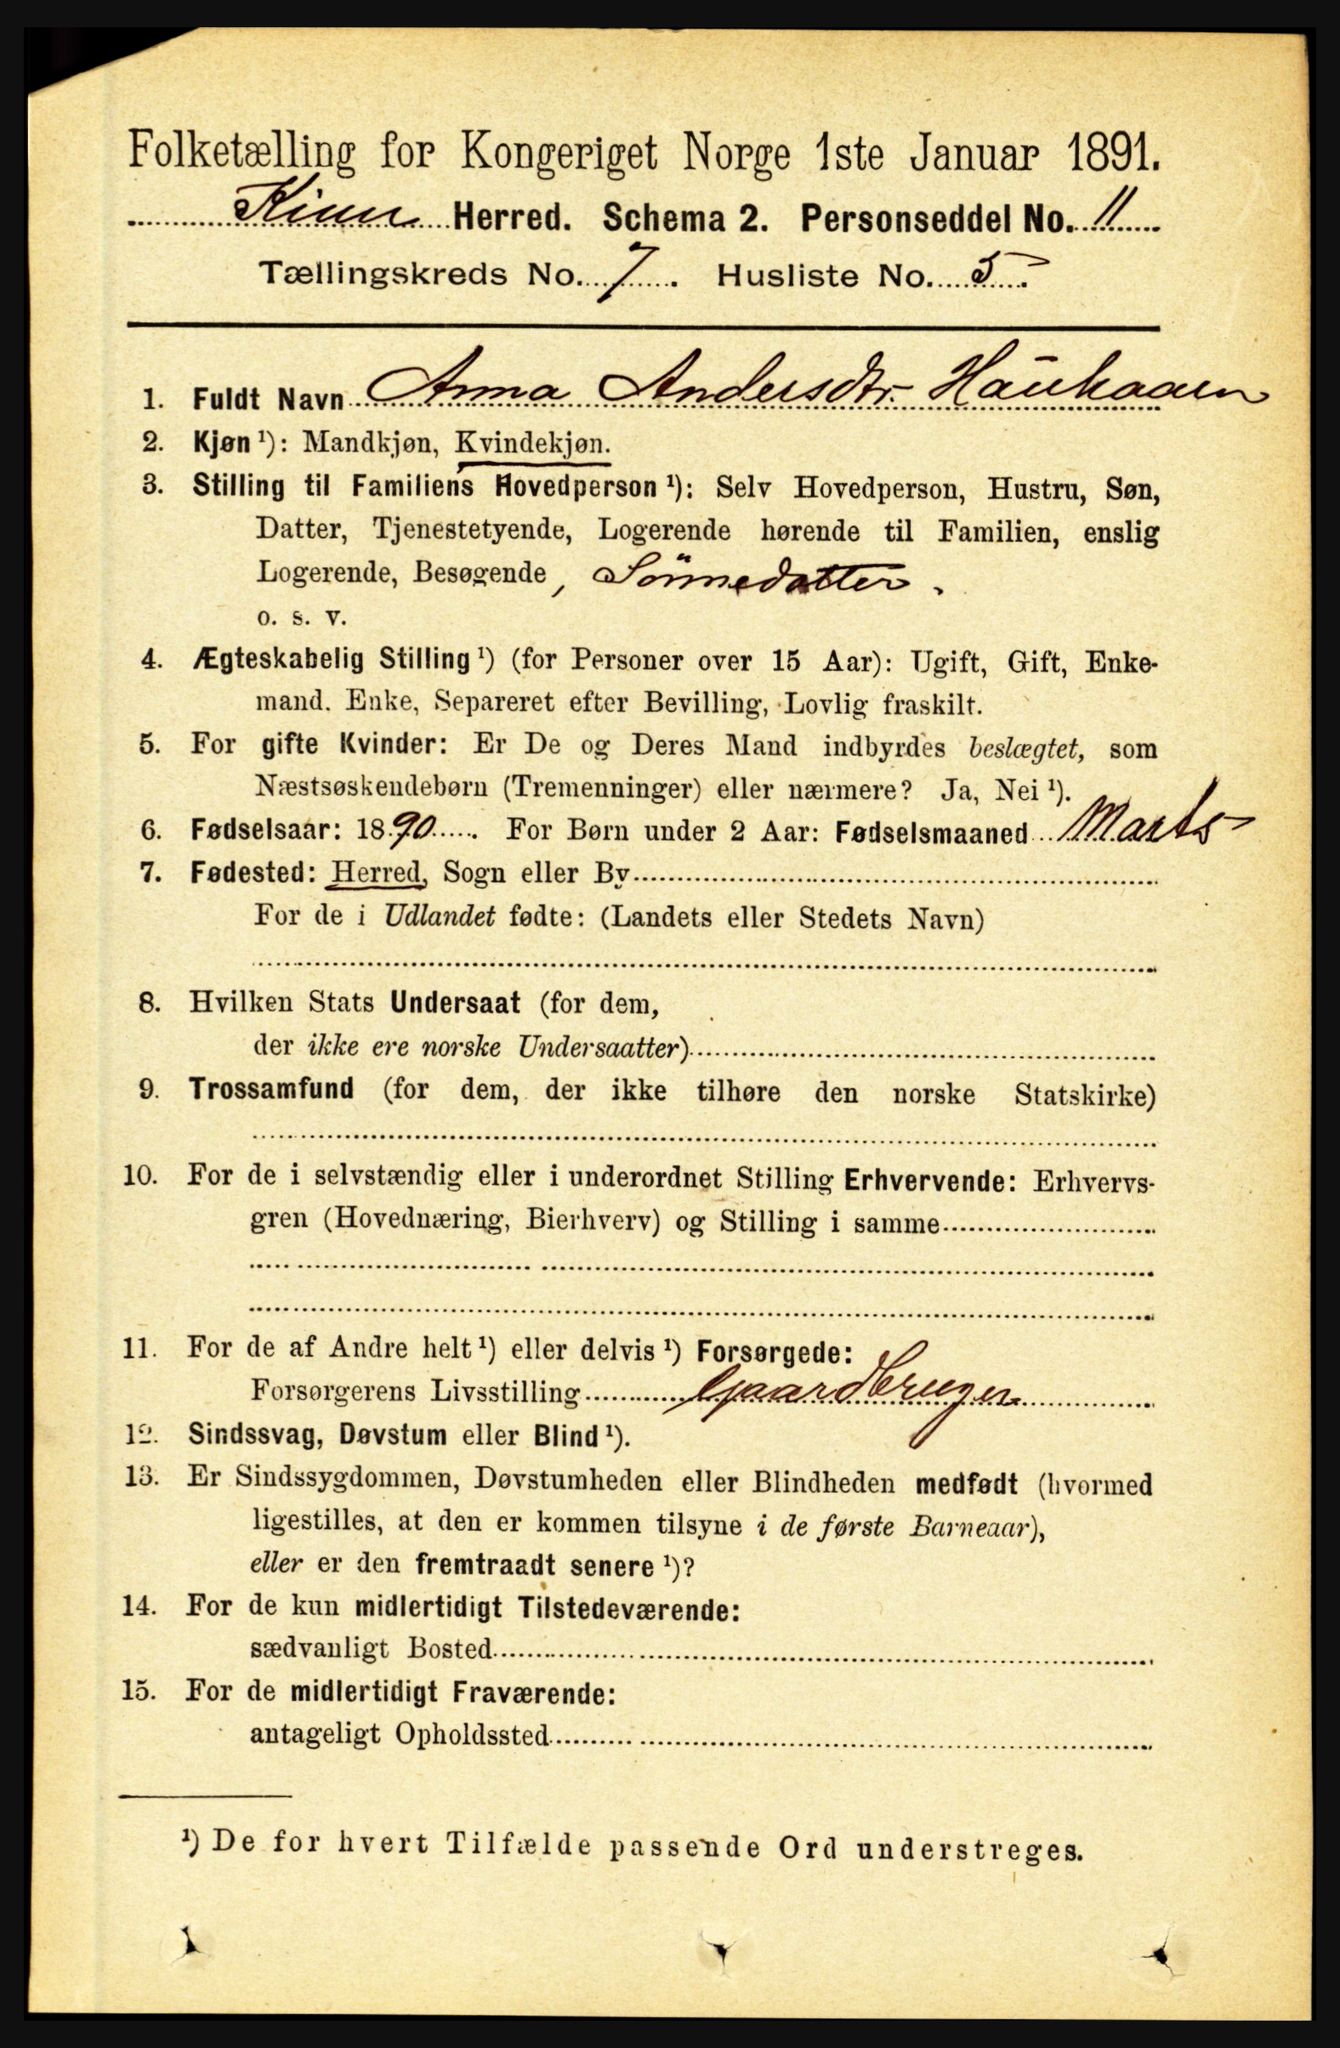 Folketælling for Kongeriget Norge 1ste Januar 1891.
Kinn Herred. Schema 2. Personseddel No. 11
Tællingskreds No. 7. Husliste No. 5.
1. Fuldt Navn Anna Andersdtr. Hauhaaen
2. Kjøn ¹): Mandkjøn, Kvindekjøn.
3. Stilling til Familiens Hovedperson ¹): Selv Hovedperson, Hustru, Søn,
Datter, Tjenestetyende, Logerende hørende til Familien, enslig
Logerende, Besøgende, Sönnedatter.
o. s. v.
4. Ægteskabelig Stilling ¹) (for Personer over 15 Aar): Ugift, Gift, Enke-
mand, Enke, Separeret efter Bevilling, Lovlig fraskilt.
5. For gifte Kvinder: Er De og Deres Mand indbyrdes beslægtet, som
Næstsøskendebørn (Tremenninger) eller nærmere? Ja, Nei ¹).
6. Fødselsaar: 1890. For Børn under 2 Aar: Fødselsmaaned Marts
7. Fødested: Herred, Sogn eller By
For de i Udlandet fødte: (Landets eller Stedets Navn)
8. Hvilken Stats Undersaat (for dem,
der ikke ere norske Undersaatter)
9. Trossamfund (for dem, der ikke tilhøre den norske Statskirke)
10. For de i selvstændig eller i underordnet Stilling Erhvervende: Erhvervs-
gren (Hovednæring, Bierhverv) og Stilling i samme
11. For de af Andre helt ¹) eller delvis ¹) Forsørgede:
Forsørgerens Livsstilling Gaardbruger
12. Sindssvag, Døvstum eller Blind ¹).
13. Er Sindssygdommen, Døvstumheden eller Blindheden medfødt (hvormed
ligestilles, at den er kommen tilsyne i de første Barneaar),
eller er den fremtraadt senere ¹)?
14. For de kun midlertidigt Tilstedeværende:
sædvanligt Bosted
15. For de midlertidigt Fraværende:
antageligt Opholdssted
¹) De for hvert Tilfælde passende Ord understreges.